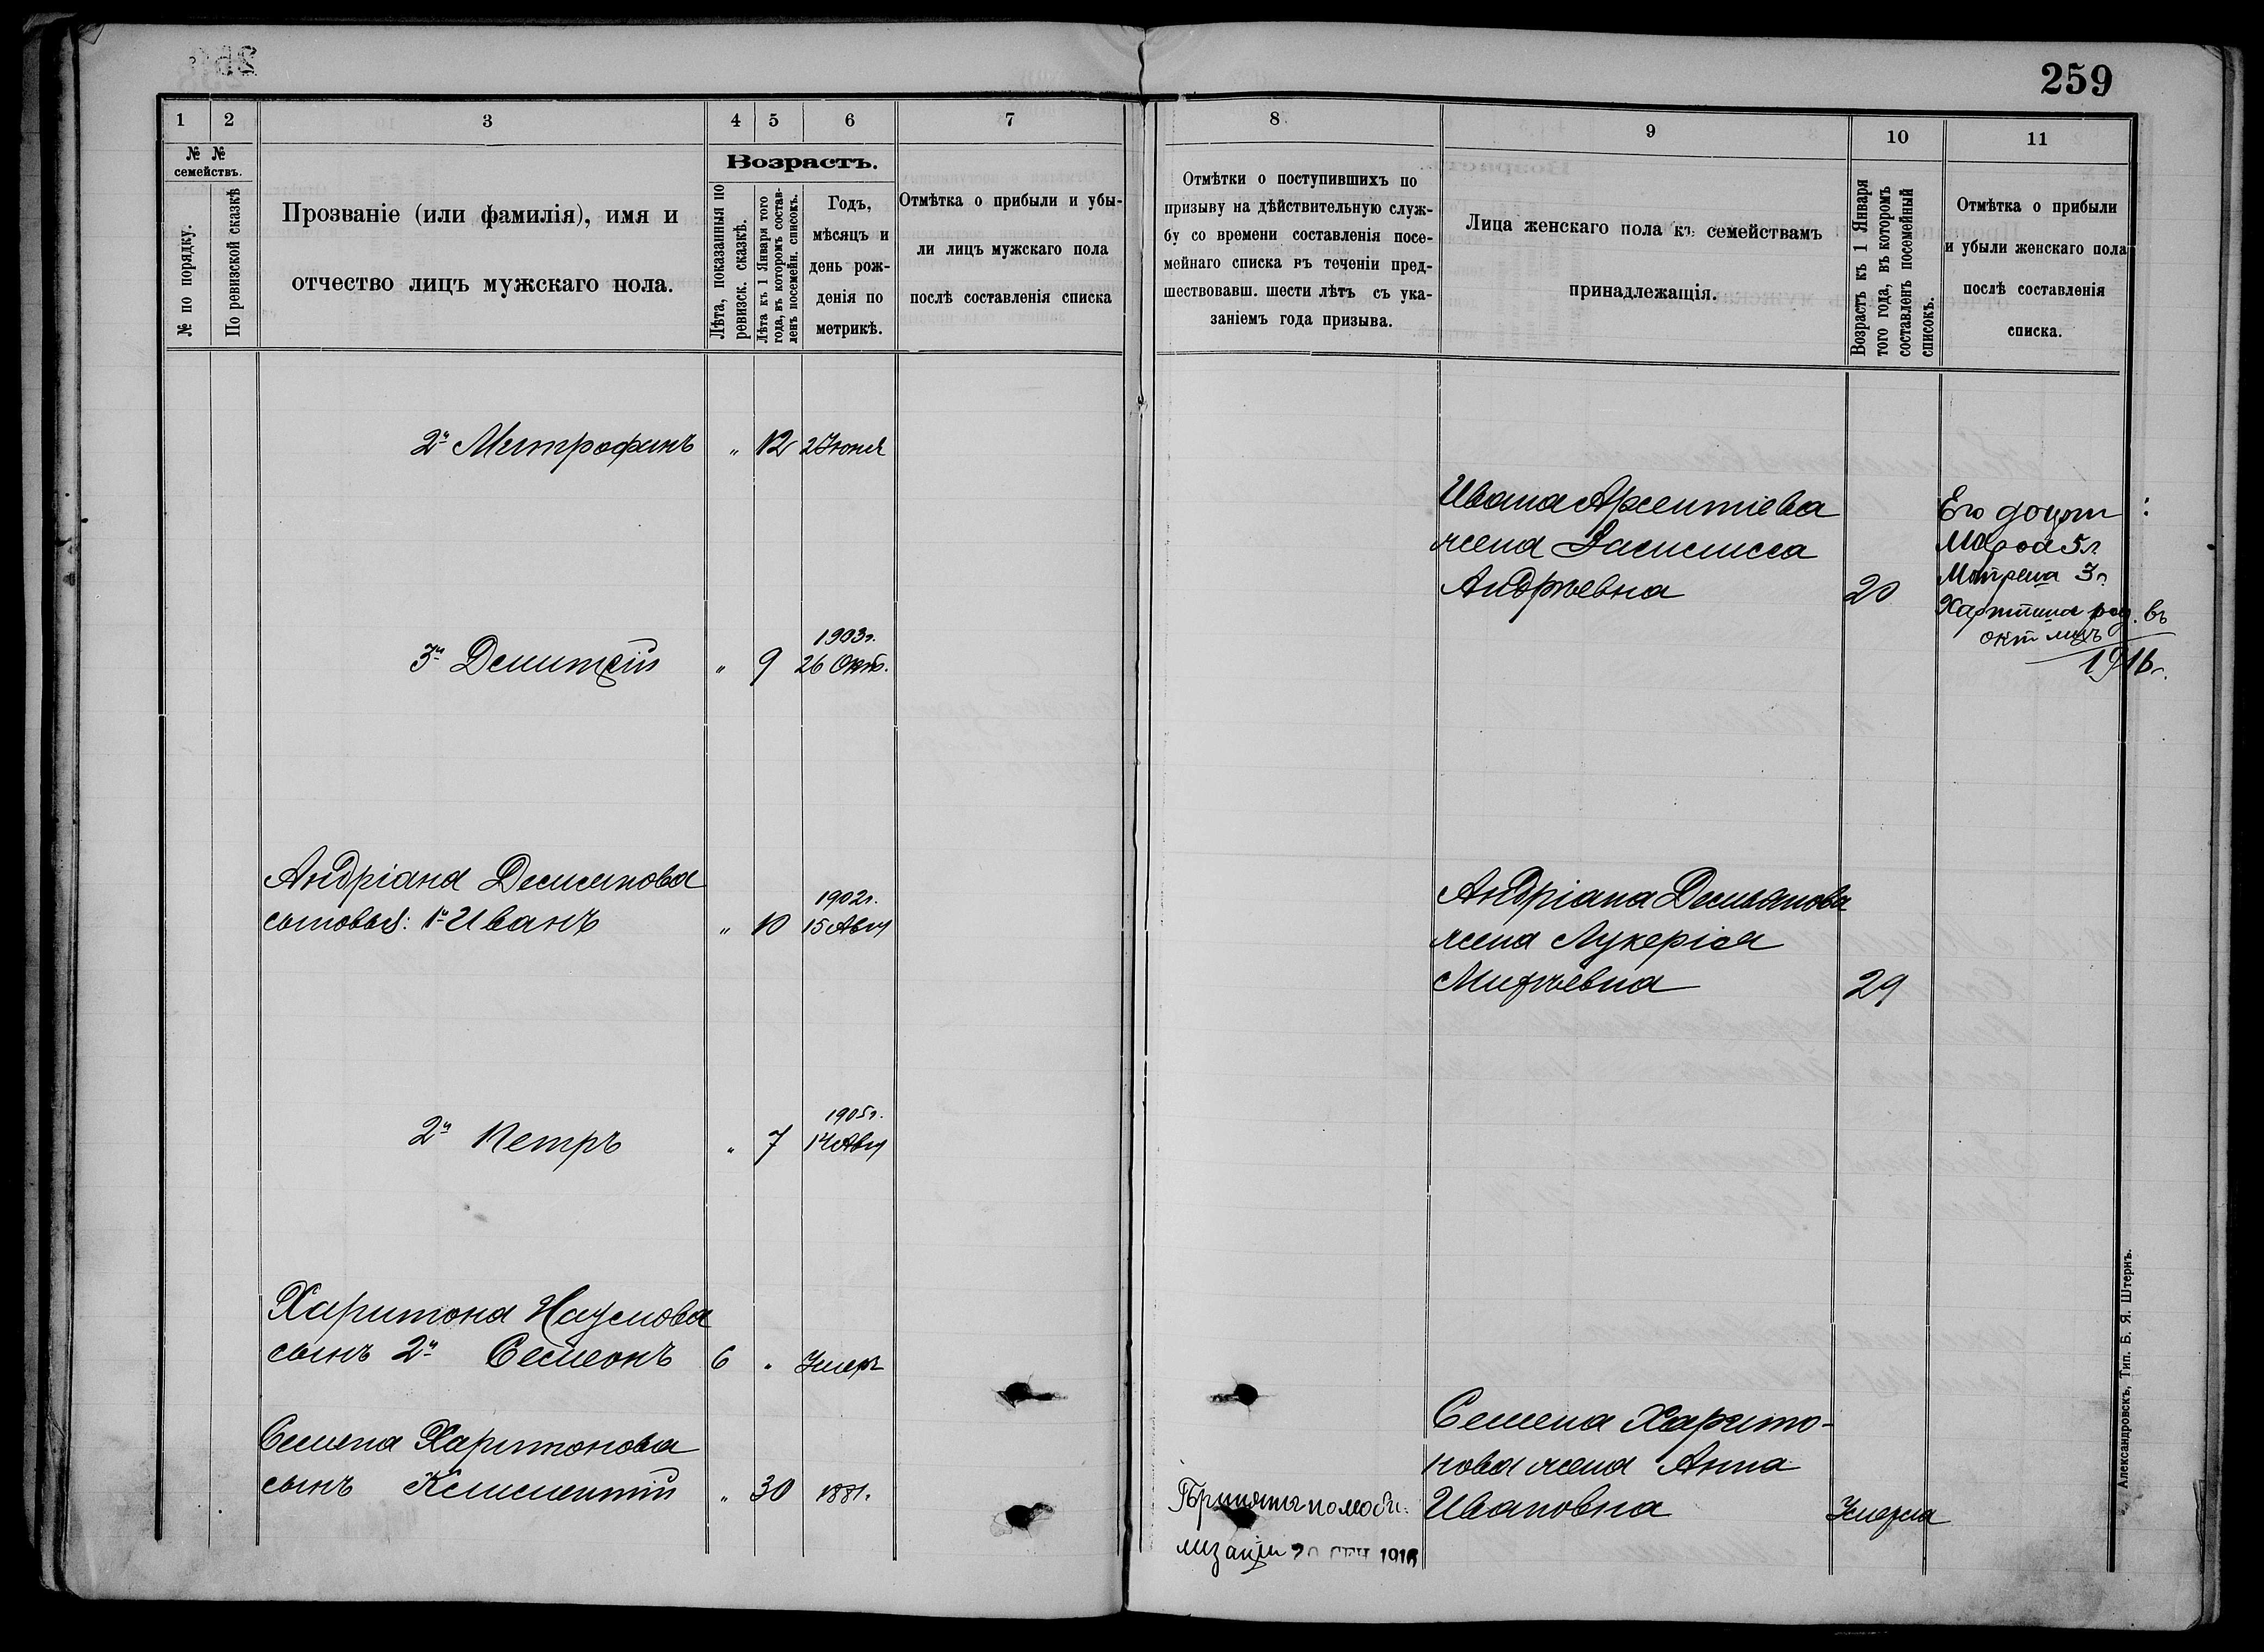 259
1 2 3 4 5 6 7
№ № семействъ.
№ по порядку.
По ревизской сказкѣ
Прозваніе (или фамилія), имя и
отчество лицъ мужскаго пола.
Возрастъ.
Лѣта, показанныя по
ревизск. сказкѣ.
Лѣта къ 1 Января того
года, въ которомъ состав-
ленъ посемейн. списокъ.
Годъ,
мѣсяцъ и
день рож-
денія по
метрикѣ.
Отмѣтка о прибыли и убы-
ли лицъ мужскаго пола
послѣ составленія списка
2й Митрофанъ " 12 2 Іюня
1903г.
3й Димитрій " 9 26 Окт.
Андріана Демьянова
1902г.
сыновья: 1й Иванъ " 10 15 Авг
1905г.
2й Петръ " 7 14 Авг
Харитона Наумова
сынъ 2й Семенъ 6 " Умеръ
Семена Харитонова
сынъ Климентій " 30 1881г.
8 9 10 11
Отмѣтки о поступившихъ по
призыву на дѣйствительную служ-
бу со времени составленія посе-
мейнаго списка въ теченіи пред-
шествовавш. шести лѣтъ съ ука-
заніемъ года призыва.
Лица женскаго пола къ семействамъ
принадлежащія.
Возрастъ къ 1 Января
того года, въ которомъ
составленъ посемейный
списокъ.
Отмѣтка о прибыли
и убыли женскаго пола
послѣ составленія
списка.
Ивана Арсентіева
жена Василисса
Андреевна 20
Его дочери:
Марфа 5 л.
Матрена 3 г.
род. въ
окт мцѣ
1916г.
Андріана Демьянова
жена Лукерія
Мифоевна 29
Семена Харито-
нова жена Анна
Ивановна Умерла
Принятъ по моби-
лизаціи 20 СЕН 1916
Александровскъ, Тип. Б. Я. Штернъ.